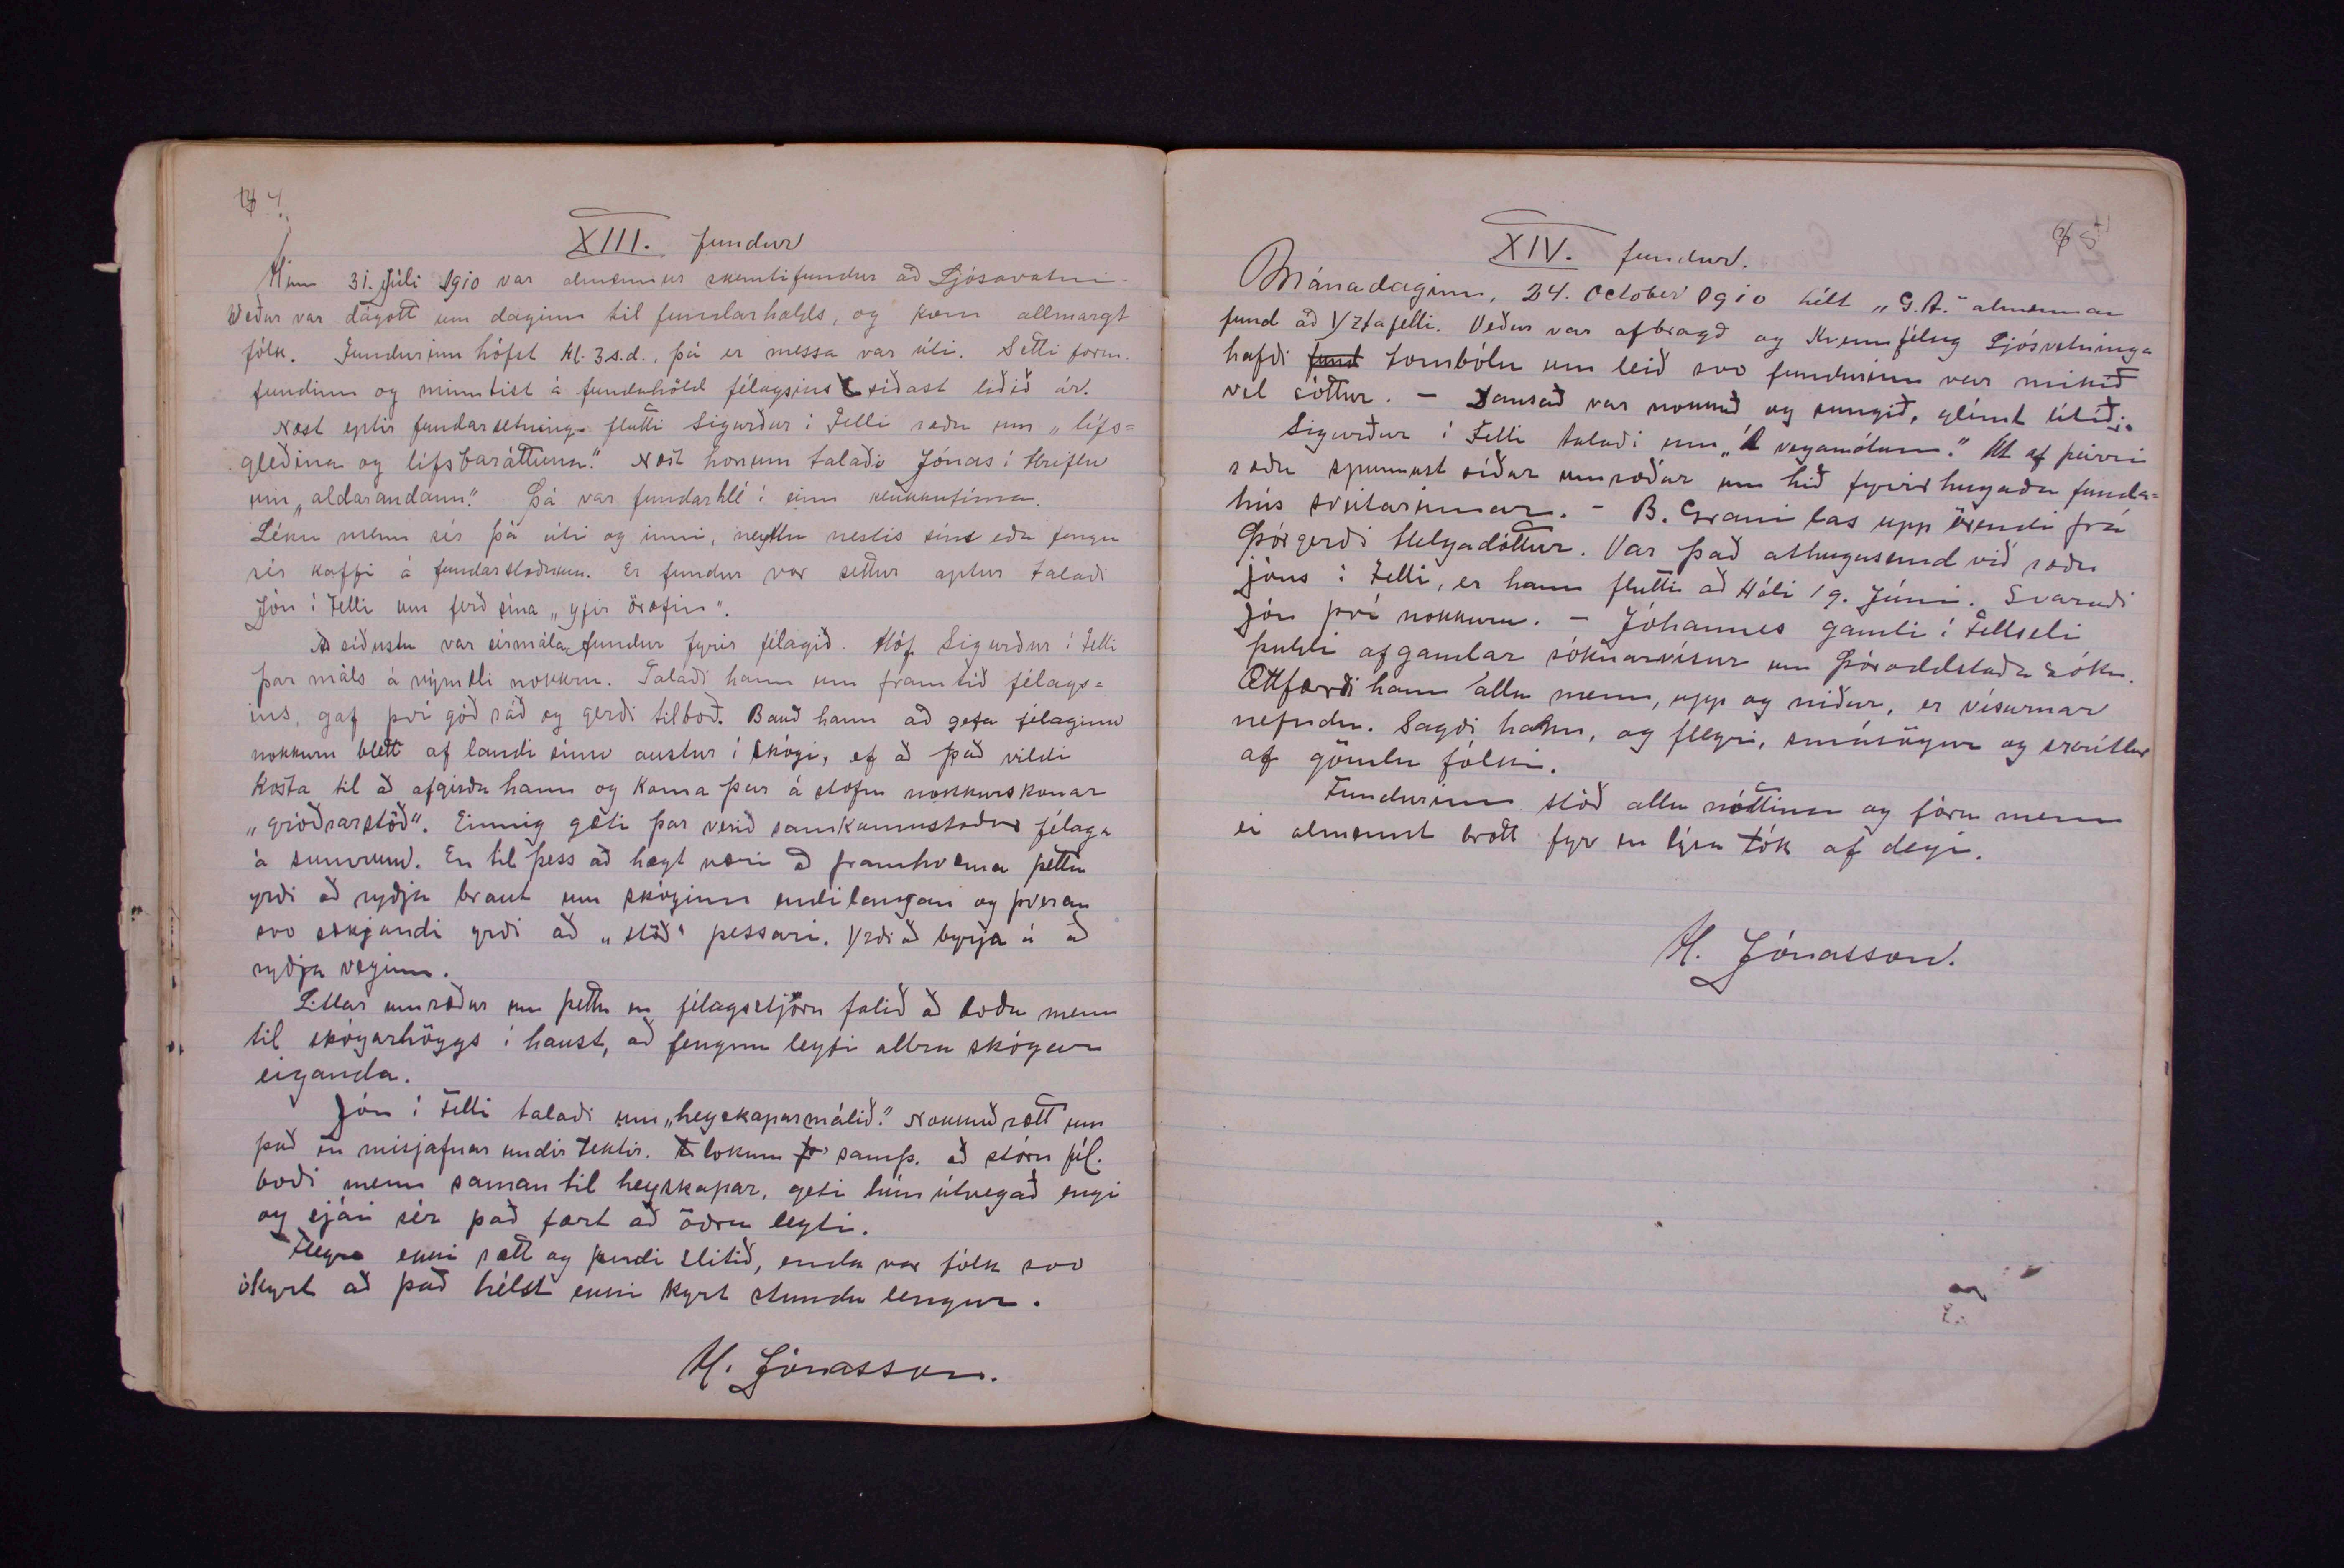 XIII. fundur
Hinn 31. Júli 1910 var almennur skemtifundur að Ljósavatni.
Veður var dágott um daginn til fundarhalds, og kom allmargt
fólk. Fundurinn hófst kl. 3 s.d., þá er messa var úti. Setti form.
fundinn og mintist á fundahöld félagsins síðast liðið ár.
Næst eptir fundarsetningu flutti Sigurður í Felli ræðu um „lífs=
gleðina og lífsbaráttuna." Næst honum talaði Jónas í Hriflu
um „aldarandann". Þá var fundarhlé í einn klukkutíma.
Léku menn sér þá úti og inni, neyttu nestis síns eða fengu
sér kaffi á fundarstaðnum. Er fundur var settur aptur talaði
Jón í Felli um ferð sína „yfir öræfin".
Að síðustu var sérmálafundur fyrir félagið. Hóf Sigurður í Felli
þar máls á nýmæli nokkru. Talaði hann um framtíð félags=
ins, gaf því góð ráð og gerði tilboð. Bauð hann að gefa félaginu
nokkurn blett af landi sínu austur í skógi, ef að það vildi
kosta til að afgirða hann og koma þar á stofn nokkurskonar
„gróðrarstöð". Einnig gæti þar verið samkomustaður félaga
á sumrum. En til þess að hægt væri að framkvæma þetta
yrði að ryðja braut um skóginn endilangan og þveran
svo sækjandi yrði að „stöð" þessari. Yrði að byrja á að
ryðja veginn.
Litlar umræður um þetta en félagsstjórn falið að boða menn
til skógarhöggs í haust, að fengnu leyfi allra skógar
eiganda.
Jón í Felli talaði um „heyskaparmálið." Nokkuð rætt um
það en misjafnar undirtektir. Að lokum samþ. að stórn fél.
boði menn saman til heyskapar, geti hún útvegað engi
og sjái sér það fært að öðru leyti.
Fleyra ekki rætt og fundi slitið, enda var fólk svo
ókyrt að það hélst ekki kyrt stundu lengur.
H. Jónasson.
XIV. fundur.
Mánadaginn, 24. October 1910 hélt „G.A." almennan
fund að Yztafelli. Veður var afbragð og Kvennfélag Ljósvetninga
hafði fund tombólu um leið svo fundurinn var mikið
vel sóttur. - Dansað var nokkuð og sungið, glímt lítið.
Sigurður í Felli talaði um „Á vegamótum." Út af þeirri
ræðu spunnust síðar umræður um hið fyrirhugaða funda=
hús sveitarinnar. - B. Grani las upp erendi frá
Þórgerði Helgadóttur. Var það athugasemd við ræðu
Jóns í Felli, er hann flutti að Hóli 19. Júni. Svaraði
Jón því nokkuru. - Jóhannes gamli í Fellseli
þuldi afgamlar sóknarvísur um Þóroddstaða sókn.
Ættfærði hann alla menn, upp og niður, er vísurnar
nefndu. Sagði hann, og fleyri, smásögur og skrítlur
af gömlu fólki.
Fundurinn stóð alla nóttina og fóru menn
ei almennt brott fyr en lýsa tók af degi.
H. Jónasson.